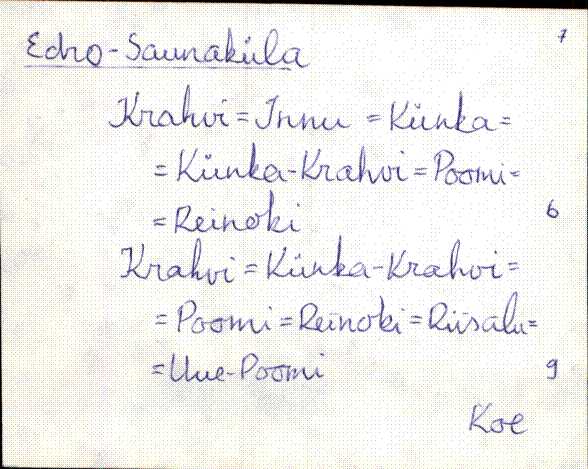 Edro-Saunaküla 7
Krahvi = Innu = Künka =
= Künka-Krahvi = Poomi =
= Reinoki 6
Krahvi = Künka-Krahvi =
= Poomi = Reinoki = Riisalu =
= Uue-Poomi 9
Koe